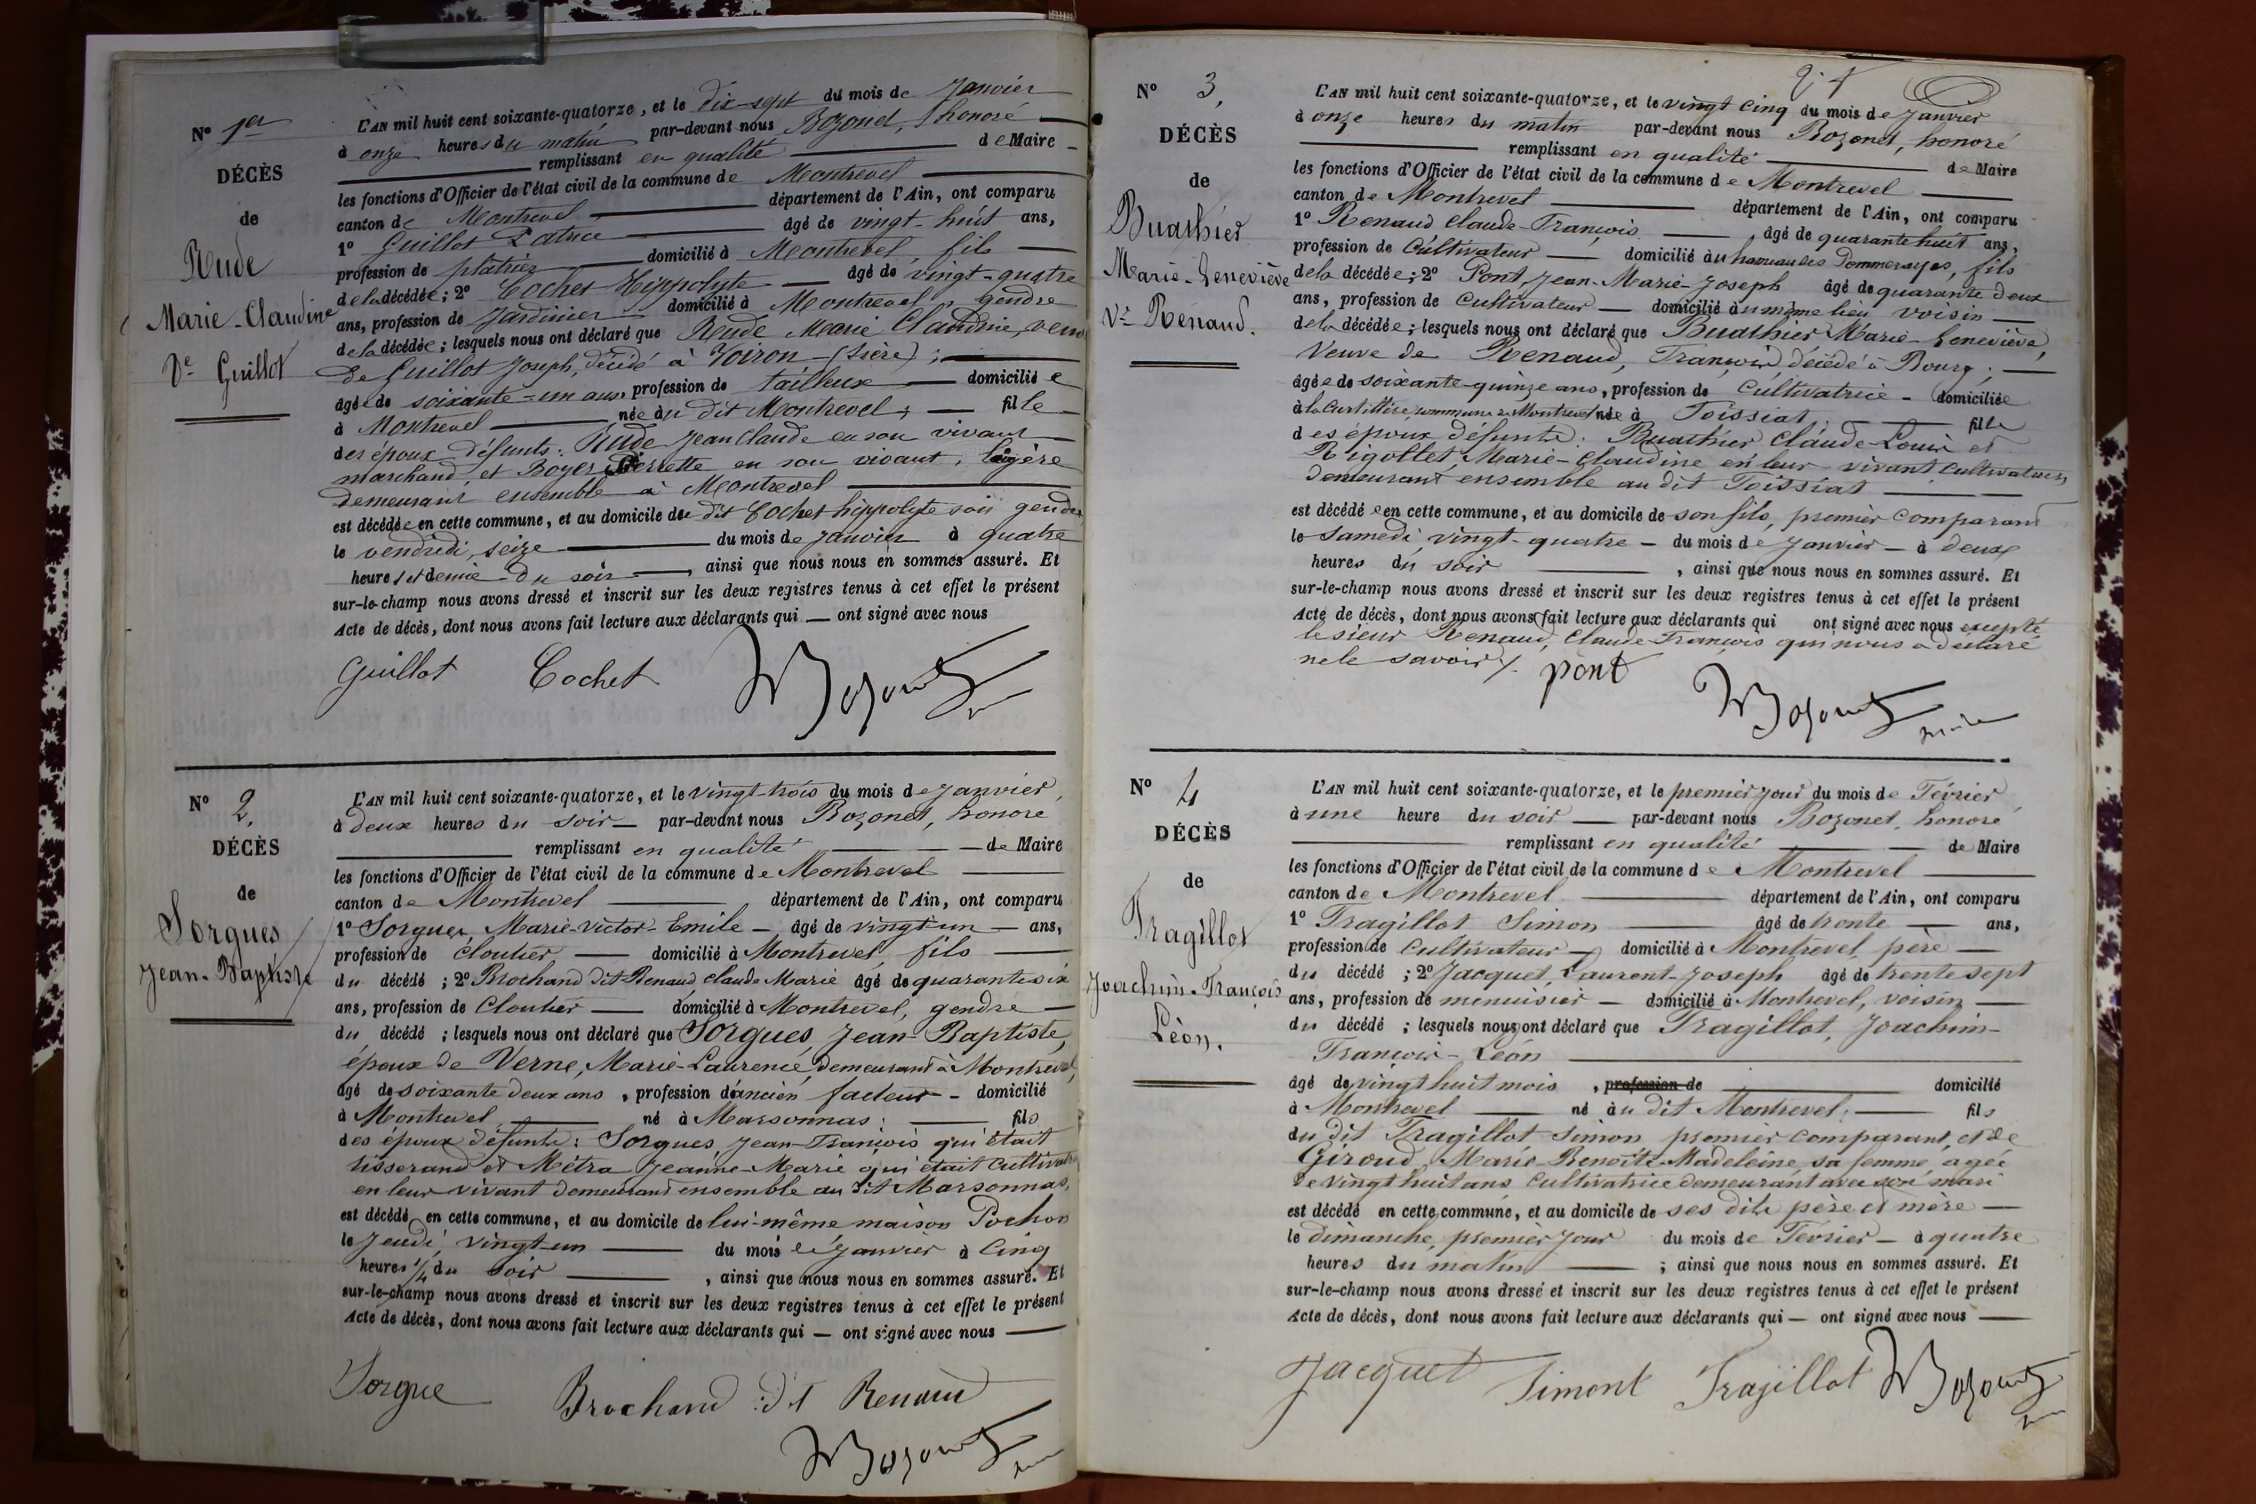 Nº 1er
DÉCÈS
de
Rude
Marie-Claudine
Ve Guillot
L'AN mil huit cent soixante-quatorze, et le dix-sept du mois de Janvier
à onze heures du matin par-devant nous Bozonet, honoré
remplissant en qualité de Maire
les fonctions d'Officier de l'état civil de la commune de Montrevel
canton de Montrevel département de l'Ain, ont comparu
1º Guillot âgé de vingt-huit ans,
profession de plâtrier domicilié à Montrevel, fils
de la décédée; 2º Cochet Hippolyte âgé de vingt-quatre
ans, profession de Jardinier domicilié à Montrevel, gendre
de la décédée; lesquels nous ont déclaré que Rude Marie Claudine, veuve
de Guillot Joseph, décédé à Voiron (Isère);
âgée de soixante-un ans, profession de tailleuse domiciliée
à Montrevel née au dit Montrevel; fille
des époux défunts: Rude Jean Claude en son vivant
marchand, et Boyer Pierrette en son vivant,
demeurant ensemble à Montrevel
est décédée en cette commune, et au domicile du dit Cochet hippolyte son gendre
le vendredi, seize du mois de Janvier à quatre
heures et demie du soir, ainsi que nous nous en sommes assuré. Et
sur-le-champ nous avons dressé et inscrit sur les deux registres tenus à cet effet le présent
Acte de décès, dont nous avons fait lecture aux déclarants qui — ont signé avec nous
Guillot Cochet Bozonet
Nº 2,
DÉCÈS
de
Sorgues
Jean-Baptiste
L'AN mil huit cent soixante-quatorze, et le vingt-trois du mois de Janvier,
à deux heures du soir — par-devant nous Bozonet, honoré
remplissant en qualité — de Maire
les fonctions d'Officier de l'état civil de la commune de Montrevel
canton de Montrevel département de l'Ain, ont comparu
1º Sorgues Marie-Victor-Emile — âgé de vingt-un — ans,
profession de cloutier — domicilié à Montrevel, fils
du décédé; 2º Brochand dit Renaud Claude Marie âgé de quarante-six
ans, profession de Cloutier — domicilié à Montrevel, gendre
du décédé; lesquels nous ont déclaré que Sorgues, Jean-Baptiste,
époux de Verne, Marie-Laurence, demeurant à Montrevel,
âgé de soixante deux ans, profession d'ancien facteur — domicilié
à Montrevel né à Marsonnas; fils
des époux défunts: Sorgues, Jean-François qui était
tisserand et Métra Jeanne-Marie qui était Cultivatrice
en leur vivant demeurant ensemble au dit Marsonnas,
est décédé en cette commune, et au domicile de lui-même maison Pochon
le Jeudi, vingt-un du mois de Janvier à Cinq
heures 1/4 du soir, ainsi que nous nous en sommes assuré. Et
sur-le-champ nous avons dressé et inscrit sur les deux registres tenus à cet effet le présent
Acte de décès, dont nous avons fait lecture aux déclarants qui — ont signé avec nous
Sorgue Brochand dit Renaud
Bozonet
Nº 3,
DÉCÈS
de
Buathier
Marie-Geneviève
Ve Renaud.
L'AN mil huit cent soixante-quatorze, et le vingt cinq du mois de Janvier
à onze heures du matin par-devant nous Bozonet, honoré
remplissant en qualité de Maire
les fonctions d'Officier de l'état civil de la commune de Montrevel
canton de Montrevel département de l'Ain, ont comparu
1º Renaud Claude-François, âgé de quarante huit ans,
profession de Cultivateur — domicilié au hameau des, fils
de la décédée; 2º Pont, Jean-Marie-Joseph âgé de quarante deux
ans, profession de Cultivateur — domicilié au même lieu, voisin
de la décédée; lesquels nous ont déclaré que Buathier Marie-Geneviève,
Veuve de Renaud, François décédé à Bourg;
âgée de soixante-quinze ans, profession de Cultivatrice — domiciliée
à la commune de Montrevel née à Foissiat; fille
des époux défunts: Buathier Claude-Louis et
Rigottet, Marie-Claudine, en leur vivant Cultivateurs,
demeurant ensemble au dit Foissiat
est décédée en cette commune, et au domicile de son fils, premier comparant
le Samedi vingt-quatre — du mois de Janvier — à deux
heures du soir, ainsi que nous nous en sommes assuré. Et
sur-le-champ nous avons dressé et inscrit sur les deux registres tenus à cet effet le présent
Acte de décès, dont nous avons fait lecture aux déclarants qui ont signé avec nous excepté
le sieur Renaud, Claude-François qui nous a déclaré
ne le savoir. pont
Bozonet
maire
Nº 4
DÉCÈS
de
Tragillot
Joachim-François
Léon.
L'AN mil huit cent soixante-quatorze, et le premier jour du mois de Février,
à une heure du soir — par-devant nous Bozonet, honoré
remplissant en qualité — de Maire
les fonctions d'Officier de l'état civil de la commune de Montrevel
canton de Montrevel département de l'Ain, ont comparu
1º Tragillot Simon âgé de trente — ans,
profession de Cultivateur — domicilié à Montrevel, père
du décédé; 2º Jacquet, Laurent-Joseph âgé de trente sept
ans, profession de menuisier — domicilié à Montrevel, voisin
du décédé; lesquels nous ont déclaré que Tragillot, Joachim-
François-Léon
âgé de vingt huit mois, profession de domicilié
à Montrevel né au dit Montrevel; fils
du dit Tragillot Simon premier comparant, et de
Giroud, Marie-Benoîte-Madeleine, sa femme, agée
de vingt huit ans Cultivatrice demeurant avec son mari
est décédé en cette commune, et au domicile de ses dits père et mère
le dimanche, premier jour du mois de Février — à quatre
heures du matin; ainsi que nous nous en sommes assuré. Et
sur-le-champ nous avons dressé et inscrit sur les deux registres tenus à cet effet le présent
Acte de décès, dont nous avons fait lecture aux déclarants qui — ont signé avec nous
Jacquet Simont Tragillot Bozonet